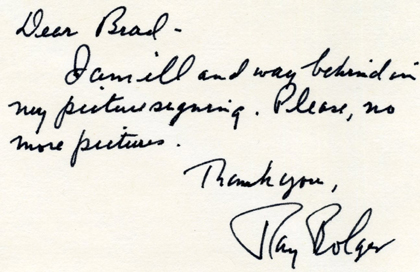 Dear Brad -
I am ill and way behind in
my picture signing. Please, no
more pictures.
Thank you,
Ray Bolger